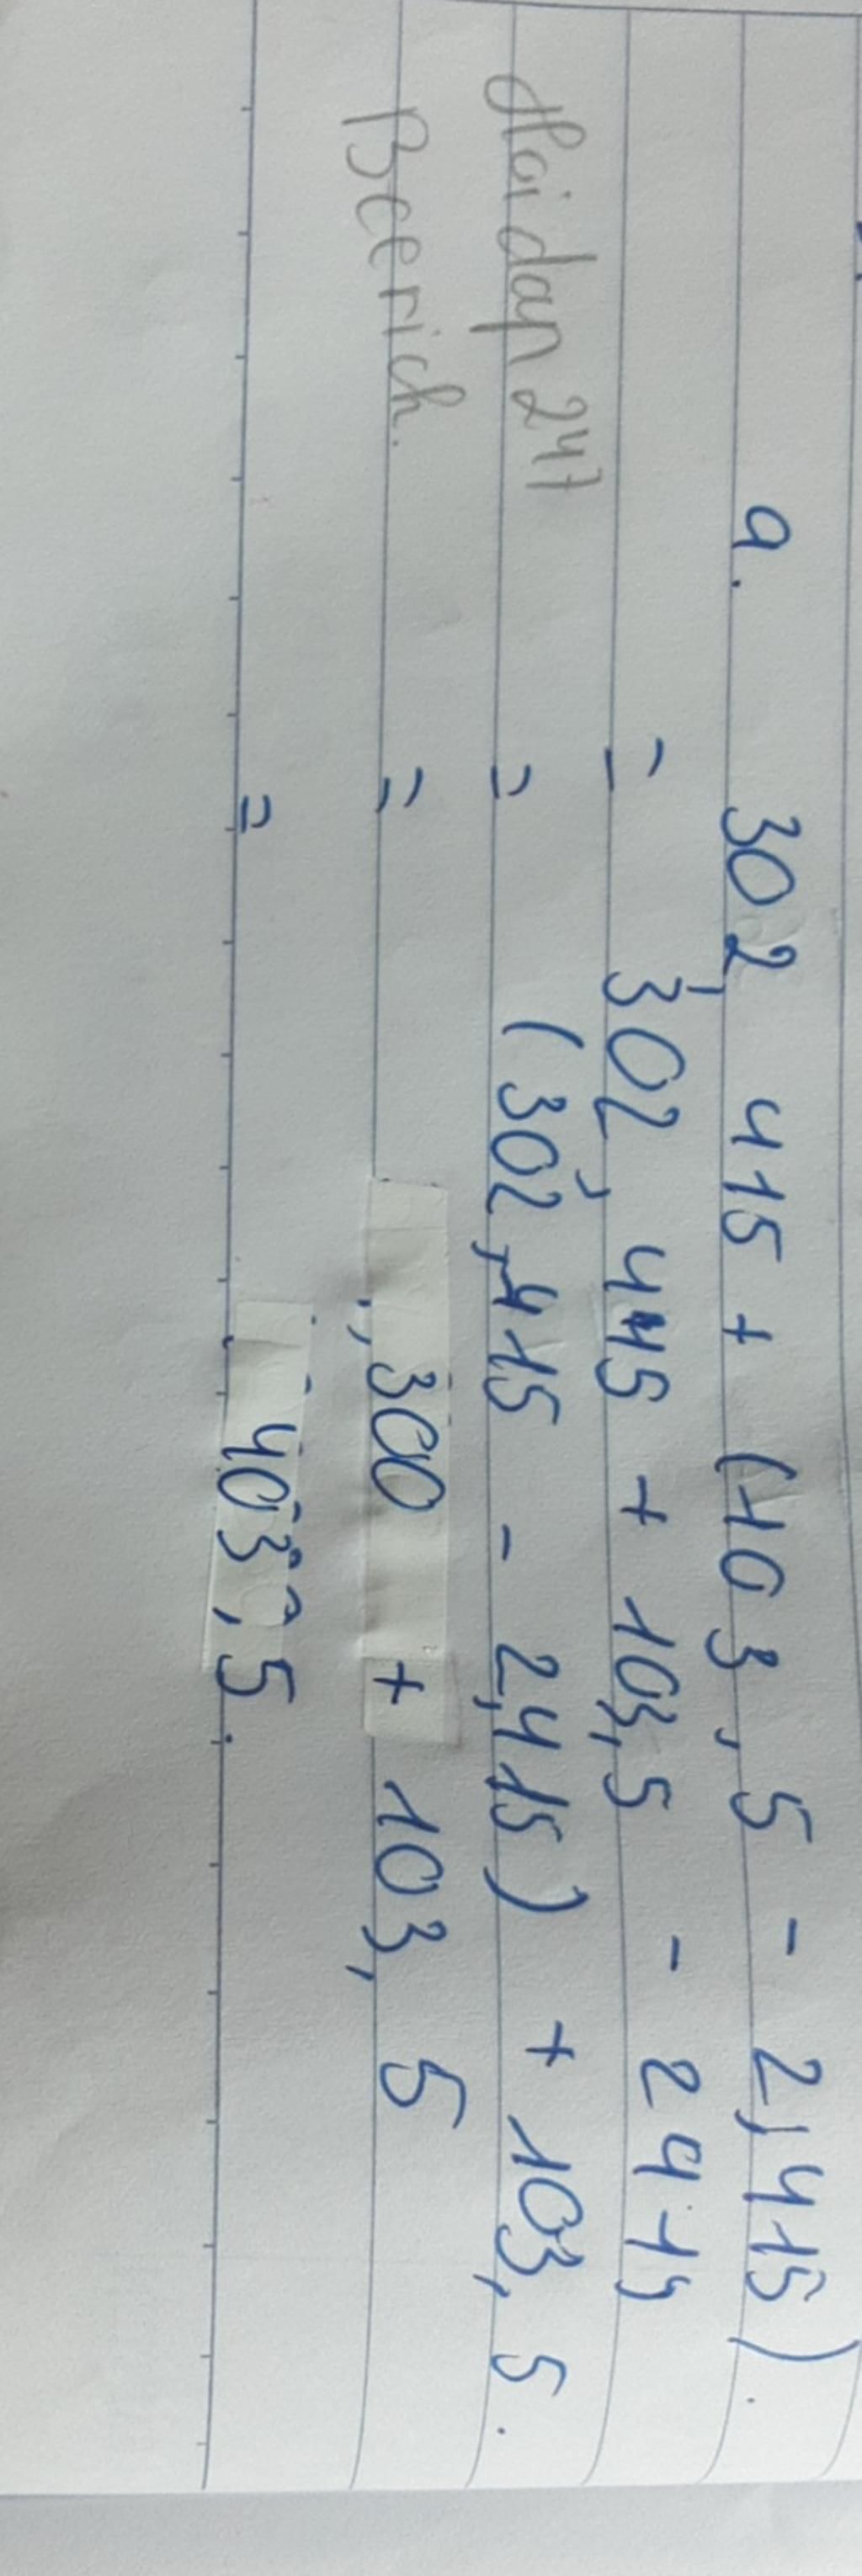 a. 302,415 + (103,5 - 2,415).
= 302,415 + 103,5 - 2415
= (302,415 - 2,415) + 103,5.
= 300 + 103,5
= 403,5.
Hoidap247
Bcerich.